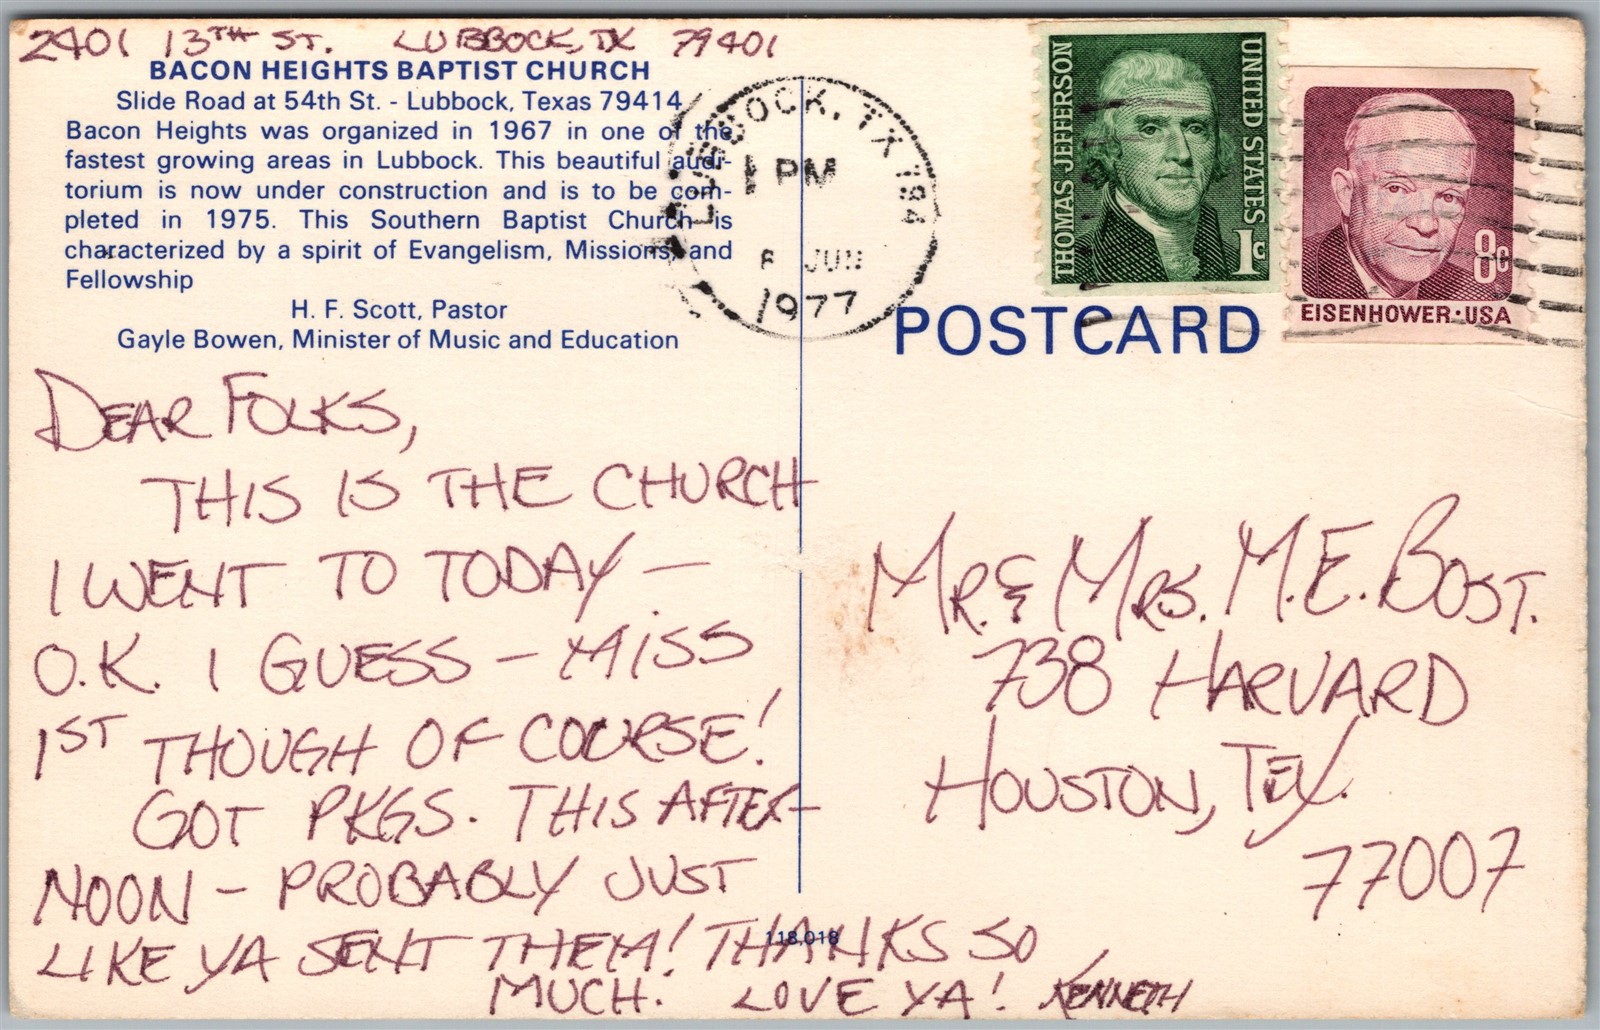 2401 13TH ST. LUBBOCK, TX 79401
BACON HEIGHTS BAPTIST CHURCH
Slide Road at 54th St. - Lubbock, Texas 79414
Bacon Heights was organized in 1967 in one of the
fastest growing areas in Lubbock. This beautiful audi-
torium is now under construction and is to be com-
pleted in 1975. This Southern Baptist Church is
characterized by a spirit of Evangelism, Missions, and
Fellowship
H. F. Scott, Pastor
Gayle Bowen, Minister of Music and Education
DEAR FOLKS,
THIS IS THE CHURCH
I WENT TO TODAY –
O.K. I GUESS – MISS
1ST THOUGH OF COURSE!
GOT PKGS. THIS AFTER-
NOON – PROBABLY JUST
LIKE YA SENT THEM! THANKS SO
MUCH. LOVE YA! KENNETH
118,018
LUBBOCK, TX 794
PM
JUN
1977
THOMAS JEFFERSON
UNITED STATES
1c
8c
EISENHOWER·USA
POSTCARD
MR. & MRS. M.E. BOST.
738 HARVARD
HOUSTON, TEX.
77007